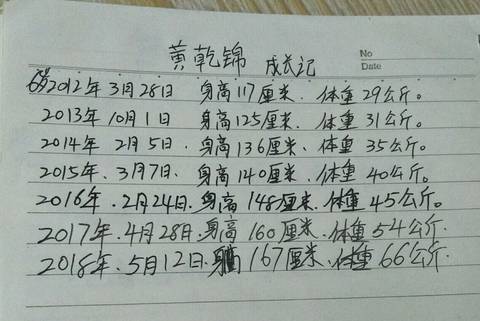 黄乾锦 成长记
No
Date
6岁2012年3月28日 身高117厘米、体重29公斤。
2013年10月1日 身高125厘米、体重31公斤。
2014年2月5日.身高136厘米、体重35公斤。
2015年.3月7日.身高140厘米、体重40公斤。
2016年.2月24日.身高148厘米、体重45公斤。
2017年.4月28日.身高160厘米、体重54公斤.
2018年.5月12日.身高167厘米、体重66公斤.